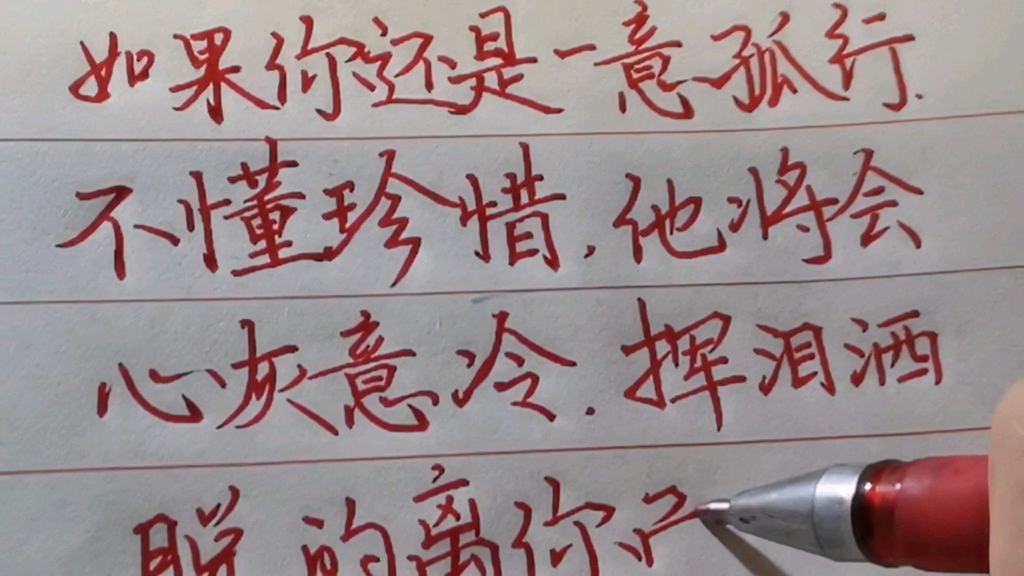 如果你还是一意孤行.
不懂珍惜,他将会
心灰意冷.挥泪洒
脱的离你